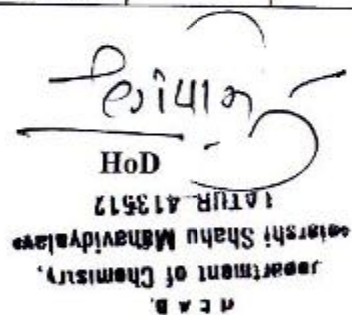 HoD
H E A D,
Department of Chemistry,
Rajarshi Shahu Mahavidyalaya
LATUR 413512